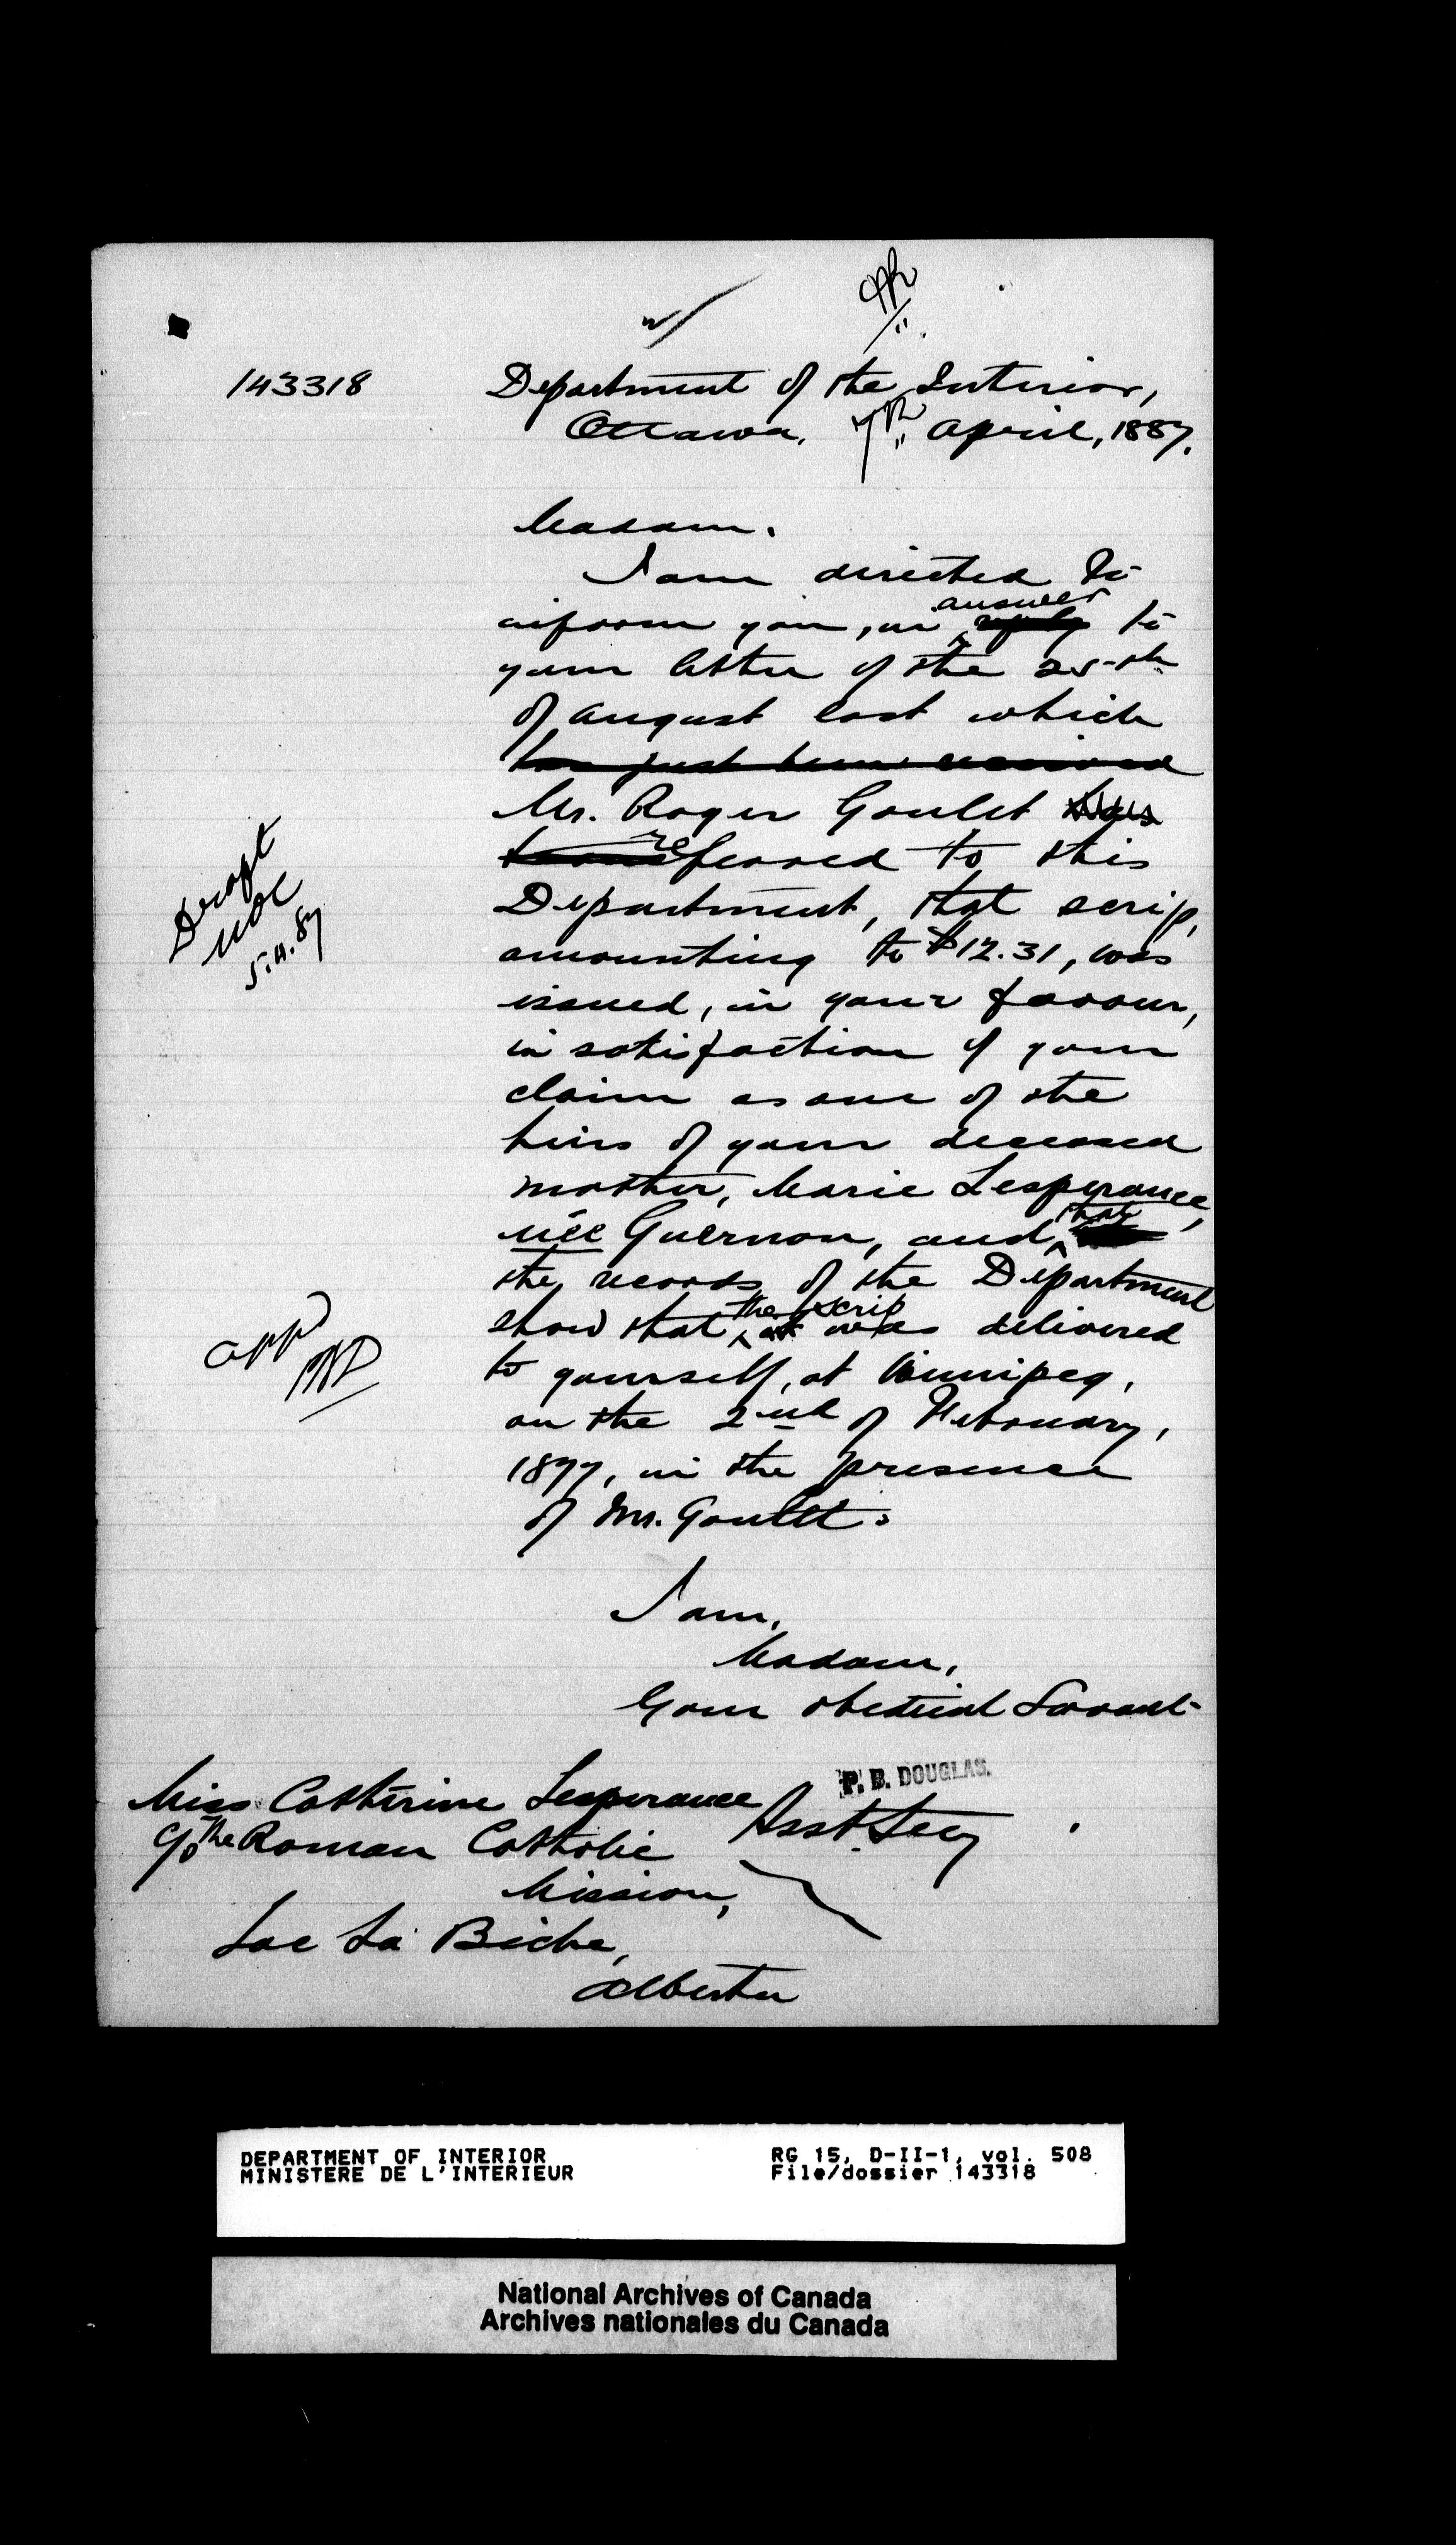 143318
Department of the Interior,
Ottawa, 7th April, 1887.
Madam.
I am directed to
inform you, in answer reply to
your letter of the 25th
of August last which
has just been received
Mr. Roger Goulet has
transreferred to this
Department, that scrip,
amounting to $12.31, was
issued, in your favour,
in satisfaction of your
claim as one of the
heirs of your deceased
mother, Marie Lesperance,
née Guernon, and, that
the records of the Department
show that the scrip it was delivered
to yourself, at Winnipeg,
on the 2nd of February,
1877, in the presence
of Mr. Goulet.
Draft
5.4.87
appd
I am,
Madam,
Your obedient Servant
P. B. DOUGLAS.
Asst Secy
Miss Catherine Lesperance
c/o the Roman Catholic
Mission,
Lac La Biche,
Alberta
DEPARTMENT OF INTERIOR RG 15, D-II-1, vol. 508
MINISTERE DE L'INTERIEUR File/dossier 143318
National Archives of Canada
Archives nationales du Canada